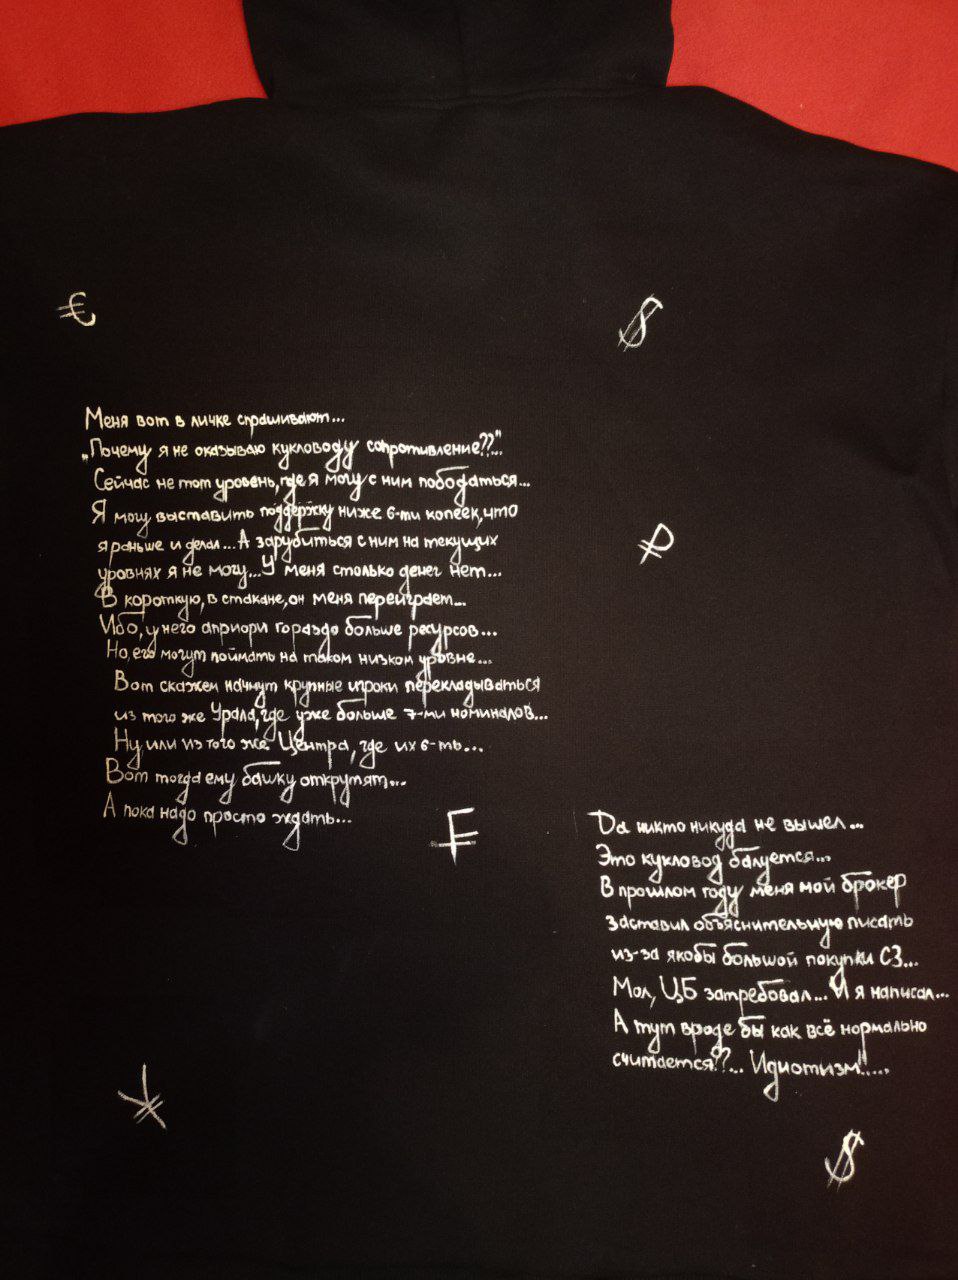 €
$
Меня вот в личке спрашивают...
„Почему я не оказываю кукловоду сопротивление??..."
Сейчас не тот уровень, где я могу с ним пободаться...
Я могу выставить поддержку ниже 6-ти копеек, что
я раньше и делал... А зарубиться с ним на текущих
уровнях я не могу... У меня столько денег нет...
В короткую, в стакане, он меня переиграет...
Ибо, у него априори гораздо больше ресурсов...
Но, его могут поймать на таком низком уровне...
Вот скажем начнут крупные игроки перекладываться
из того же Урала, где уже больше 7-ми номиналов...
Ну, или из того же Центра, где их 6-ть...
Вот тогда ему башку открутят...
А пока надо просто ждать...
₽
₣
Да никто никуда не вышел...
Это кукловод балуется...
В прошлом году меня мой брокер
заставил объяснительную писать
из-за якобы большой покупки СЗ...
Мол, ЦБ затребовал... И я написал...
А тут вроде бы как всё нормально
считается??... Идиотизм!!....
¥
$